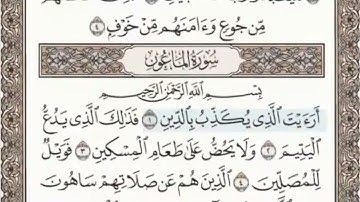 مِّن جُوعٍ وَءَامَنَهُم مِّنْ خَوْفٍۭ ٤
سُورَةُ المَاعُونِ
بِسْمِ اللَّهِ الرَّحْمَٰنِ الرَّحِيمِ
أَرَءَيْتَ ٱلَّذِى يُكَذِّبُ بِٱلدِّينِ ١ فَذَٰلِكَ ٱلَّذِى يَدُعُّ
ٱلْيَتِيمَ ٢ وَلَا يَحُضُّ عَلَىٰ طَعَامِ ٱلْمِسْكِينِ ٣ فَوَيْلٌ
لِّلْمُصَلِّينَ ٤ ٱلَّذِينَ هُمْ عَن صَلَاتِهِمْ سَاهُونَ